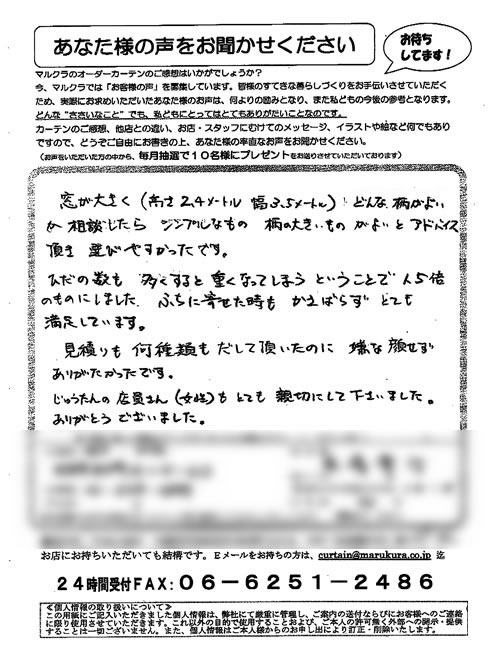 あなた様の声をお聞かせください
お待ち
してます!
マルクラのオーダーカーテンのご感想はいかがでしょうか?
今、マルクラでは「お客様の声」を募集しています。皆様のすてきな暮らしづくりをお手伝いさせていただく
ため、実際にお求めいただいたあなた様のお声は、何よりの励みとなり、また私どもの今後の参考となります。
どんな“ささいなこと”でも、私どもにとってはとてもありがたいことなのです。
カーテンのご感想、他店との違い、お店・スタッフにむけてのメッセージ、イラストや絵など何でもあり
ますので、どうぞご自由にお書きの上、あなた様の率直なお声をお聞かせください。
(お声をいただいた方の中から、毎月抽選で10名様にプレゼントをお送りさせていただいております)
窓が大きく (高さ 2.4メートル 幅 3.5メートル) どんな 柄がよい
か 相談したら シンプルなもの 柄の大きいもの がよいと アドバイス
頂き 選びやすかったです。
ひだの数も 多くすると 重くなってしまう ということで 1.5倍
のものにしました ふちに寄せた時も かさばらず とても
満足しています。
見積りも 何種類も だして頂いたのに 嫌な 顔せず
ありがたかったです。
じゅうたんの 店員さん (女性)も とても 親切にして下さいました。
ありがとう ございました。
お店にお持ちいただいても結構です。Eメールをお持ちの方は、curtain@marukura.co.jp 迄
24時間受付FAX:06-6251-2486
≪個人情報の取り扱いについて≫
この用紙にご記入いただきました個人情報は、弊社にて厳重に管理し、ご案内の送付ならびにお客様へのご連絡
に限り使用させていただきます。これ以外の目的で使用すること、および、ご本人の許可無く外部への開示・提供
することは一切ございません。また、個人情報はご本人様からのお申し出により訂正・削除いたします。